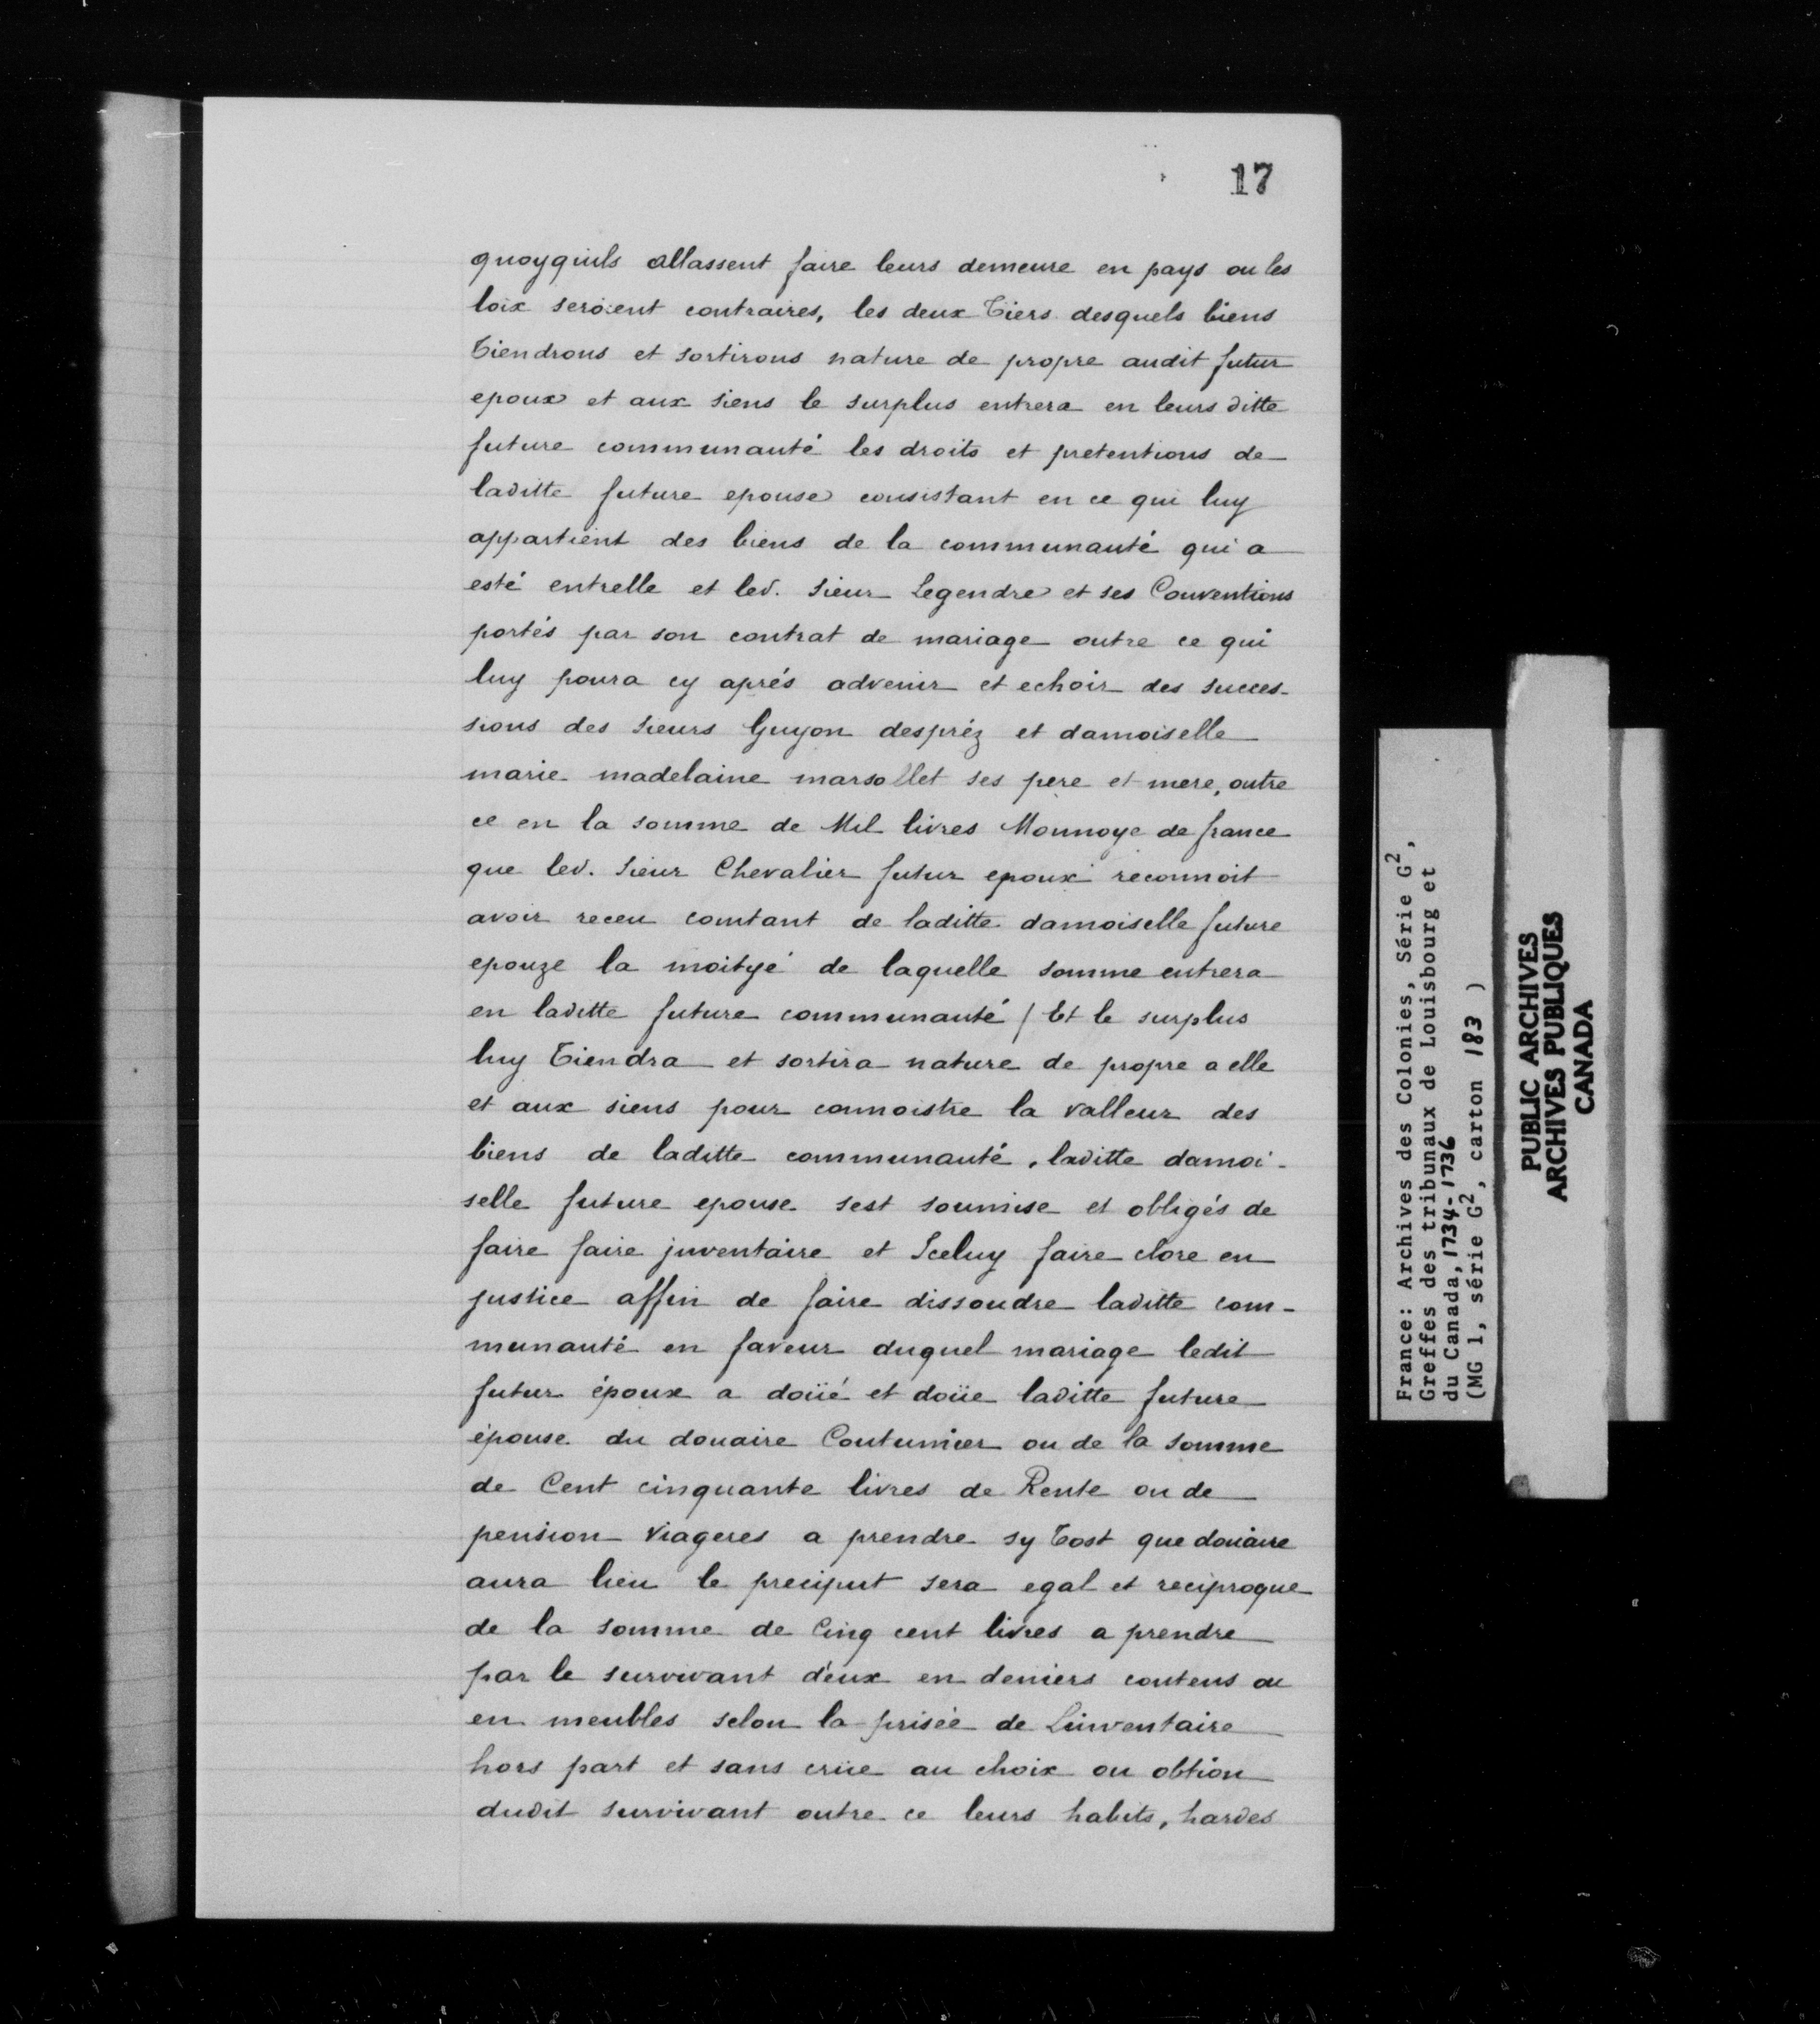 17
quoyquils allassent faire leurs demeure en pays ou les
loix seroient contraires, les deux Tiers desquels biens
Tiendrons et sortirons nature de propre audit futur
epoux et aux siens le surplus entrera en leurs ditte
future communauté les droits et pretentions de
laditte future epouse consistant en ce qui luy
appartient des biens de la communauté qui a
esté entrelle et led. sieur Legendre et ses Conventions
portés par son contrat de mariage outre ce qui
luy poura cy aprés advenir et echoir des succes-
sions des sieurs Guyon despréz et damoiselle
marie madelaine marsollet ses pere et mere, outre
ce en la somme de Mil livres Monnoye de france
que led. sieur Chevalier futur epoux reconnoit
avoir receu comtant de laditte damoiselle future
epouze la moityé de laquelle somme entrera
en laditte future communauté / Et le surplus
luy Tiendra et sortira nature de propre a elle
et aux siens pour connoistre la valleur des
biens de laditte communauté, laditte damoi-
selle future epouse sest soumise et obligés de
faire faire juventaire et Iceluy faire clore en
justice affin de faire dissoudre laditte com-
munauté en faveur duquel mariage ledit
futur époux a doüé et doüe laditte future
épouse du douaire Coutumier ou de la somme
de Cent cinquante livres de Rente ou de
pension Viageres a prendre sy Tost que douaire
aura lieu le preciput sera egal et reciproque
de la somme de Cinq cent livres a prendre
par le survivant d'eux en deniers contens ou
en meubles selon la prisée de Linventaire
hors part et sans crüe au choix ou obtion
dudit survivant outre ce leurs habits, hardes
France: Archives des Colonies, Série G²,
Greffes des tribunaux de Louisbourg et
du Canada, 1734-1736
(MG 1, série G², carton 183 )
PUBLIC ARCHIVES
ARCHIVES PUBLIQUES
CANADA